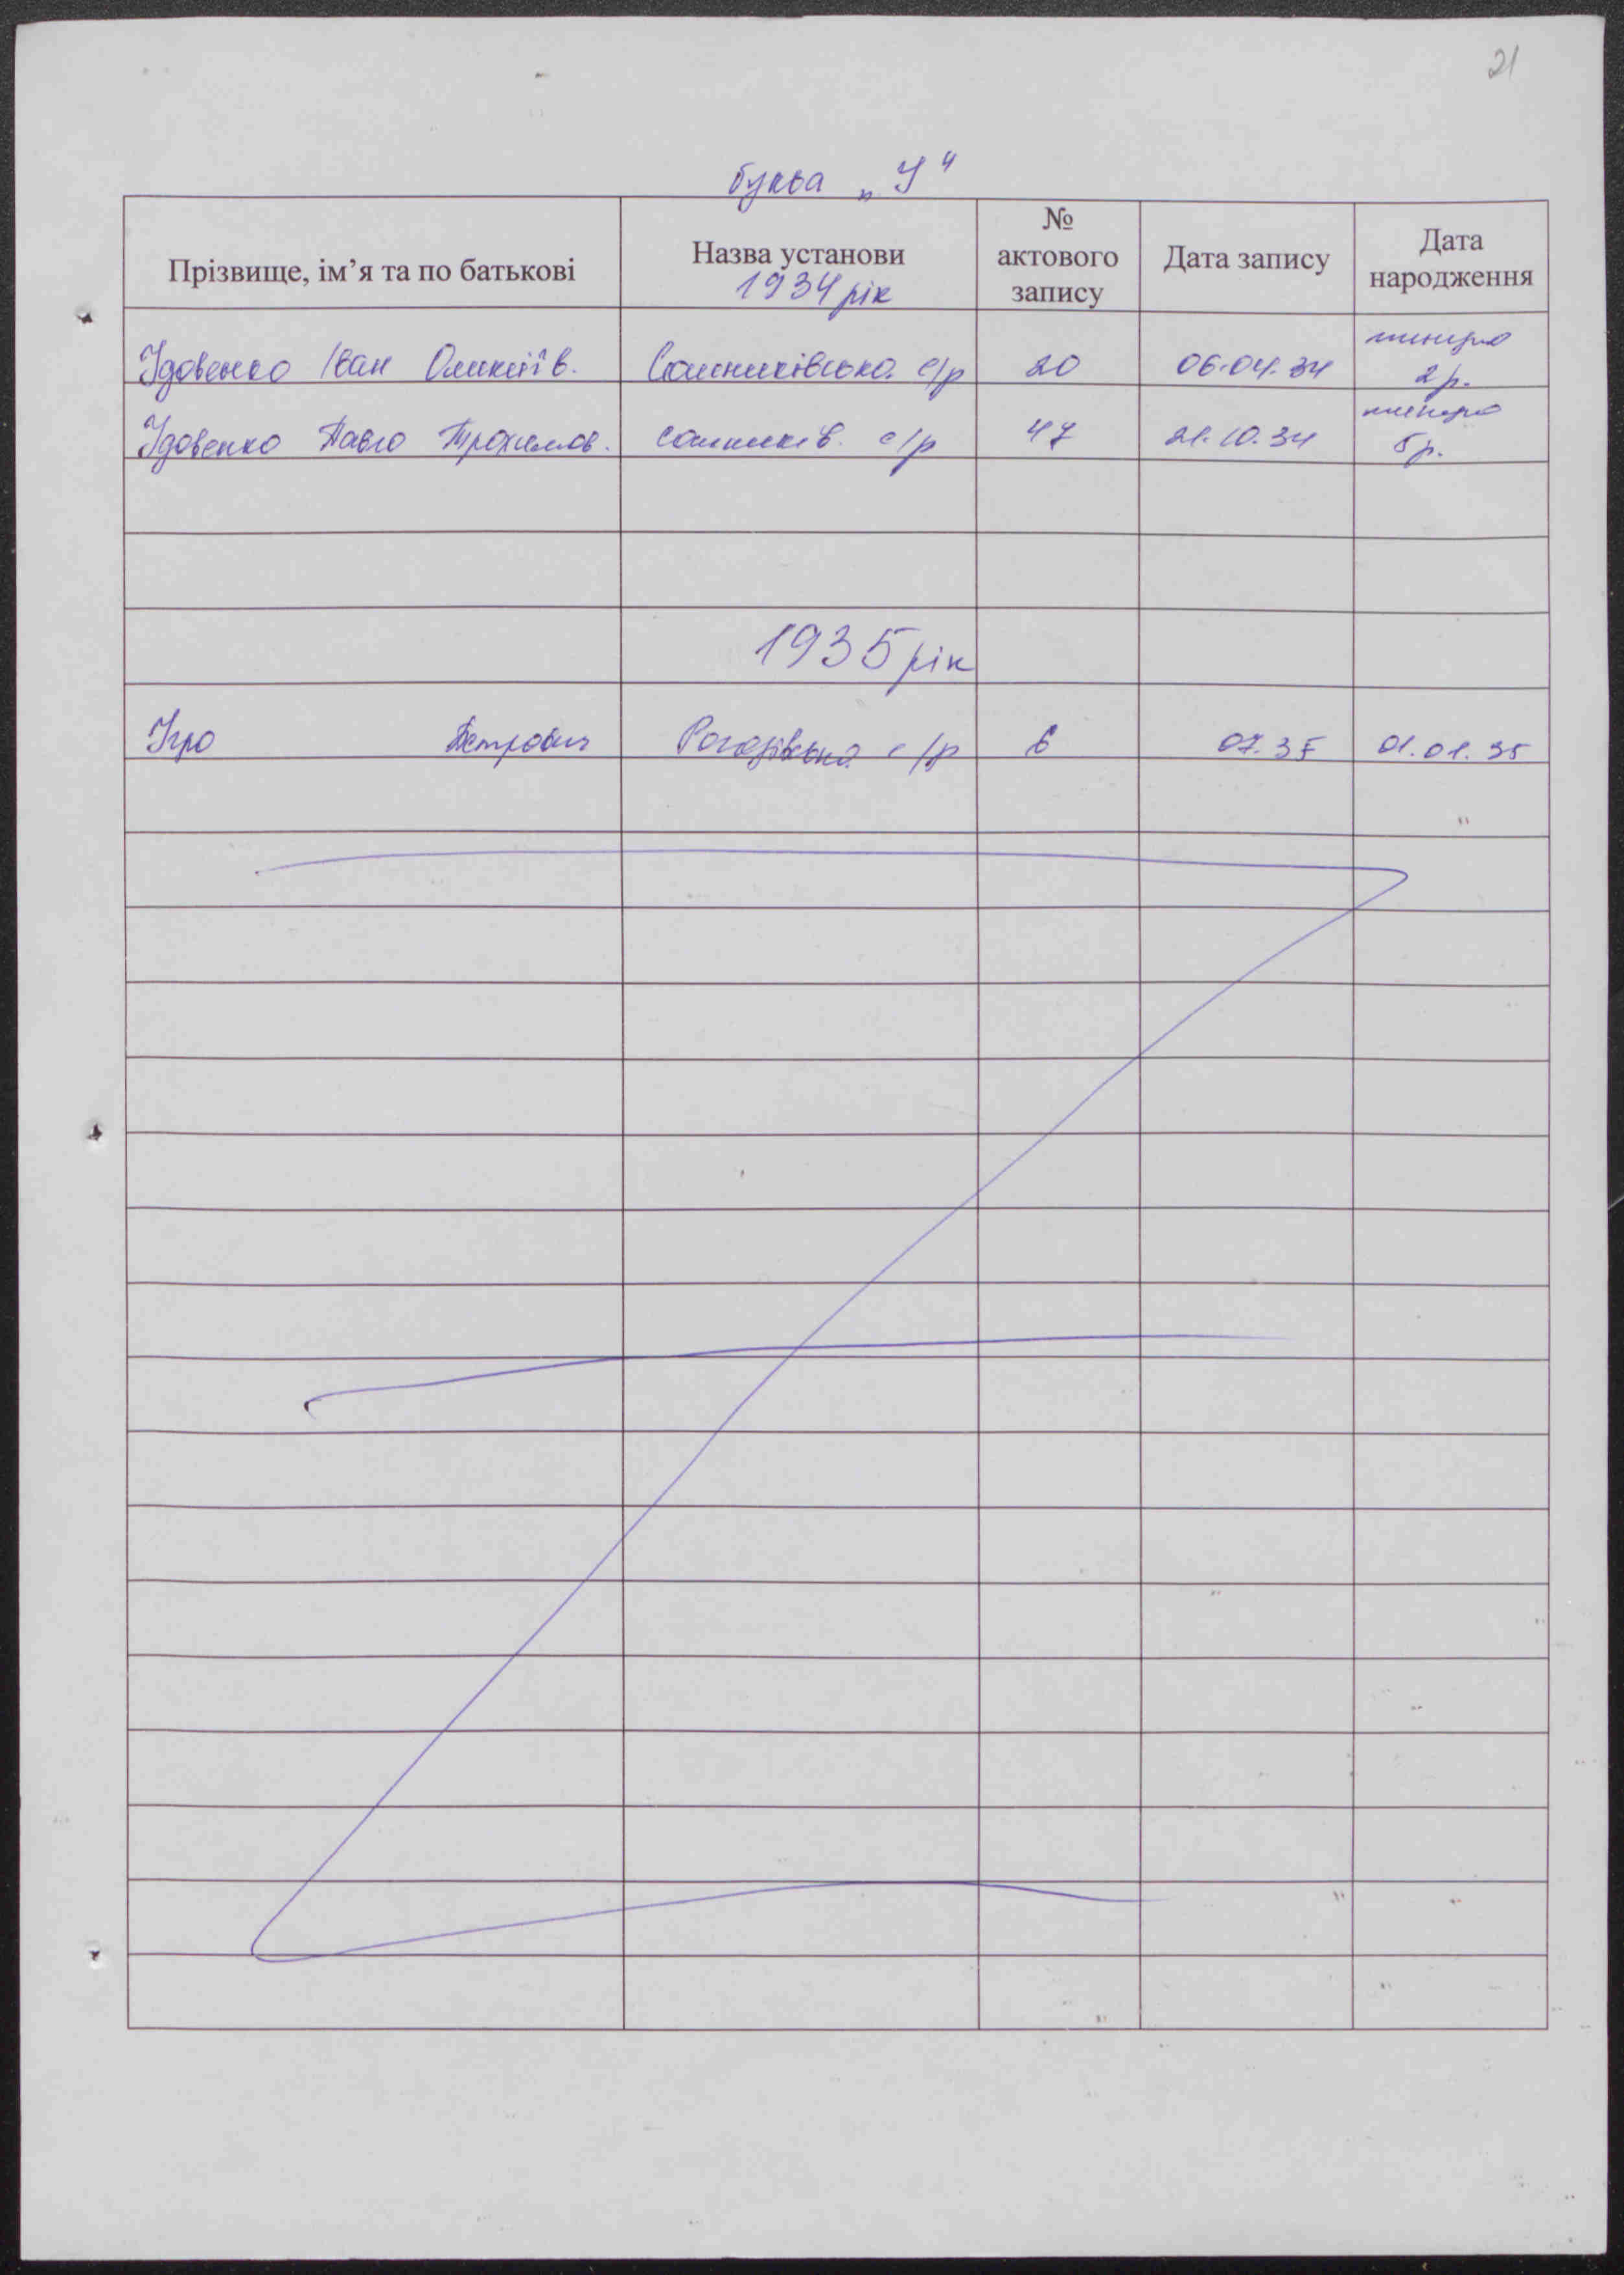 21
буква „У"
Прізвище, ім’я та по батькові
Назва установи
1934 рік
№
актового
запису
Дата запису
Дата
народження
Удовенко Іван Олексіїв. Сошниківська с/р 20 06.04.34 помер 2 р.
Удовенко Павло Трохимов. сошників. с/р 47 21.10.34 5 р.
1935 рік
Петрович Рогозівська с/р 6 07.35 01.01.35